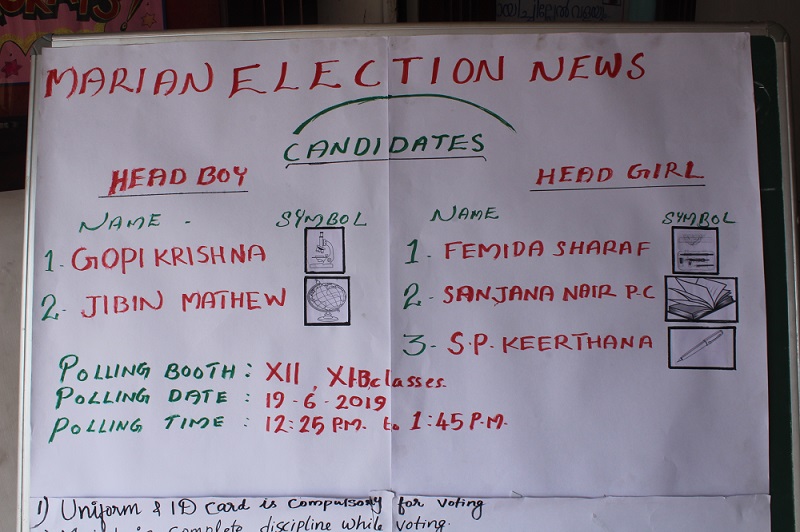 MARIAN ELECTION NEWS
CANDIDATES
HEAD BOY
NAME - SYMBOL
1. GOPI KRISHNA
2. JIBIN MATHEW
HEAD GIRL
NAME SYMBOL
1. FEMIDA SHARAF
2. SANJANA NAIR P.C
3. S.P. KEERTHANA
POLLING BOOTH : XII, XI-B classes.
POLLING DATE : 19-6-2019
POLLING TIME : 12:25 P.M. to 1:45 P.M.
1) Uniform & ID card is compulsory for voting
complete discipline while voting.